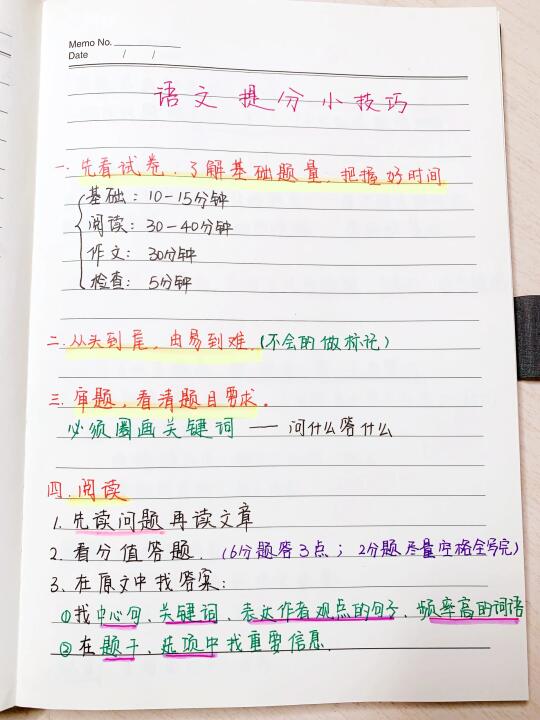 Memo No.
Date / /
语文提分小技巧
一.先看试卷.了解基础题量,把握好时间
基础:10-15分钟
阅读:30-40分钟
作文:30分钟
检查:5分钟
二.从头到尾,由易到难.(不会的做标记)
三.审题,看清题目要求。
必须圈画关键词——问什么答什么
四.阅读
1.先读问题再读文章
2.看分值答题.(6分题答3点;2分题尽量空格全写完)
3.在原文中找答案:
①找中心句、关键词、表达作者观点的句子、频率高的词语
②在题干、选项中找重要信息.